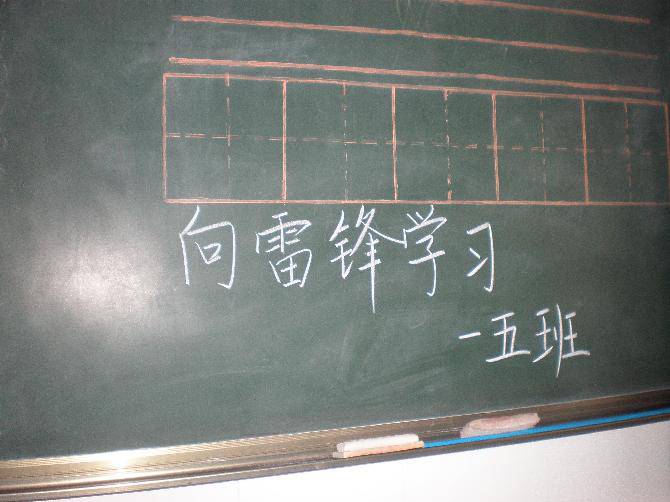 向雷锋学习
一五班